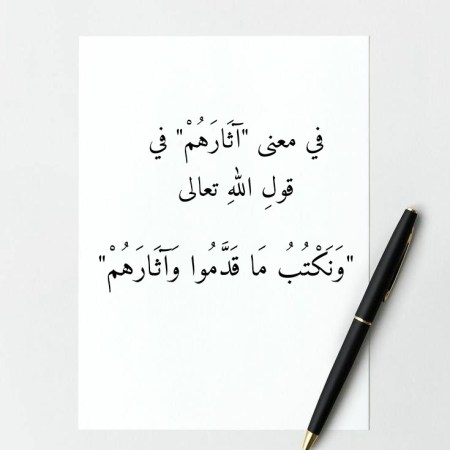 في معنى "آثَارَهُمْ" في
قولِ اللهِ تعالى
"وَنَكْتُبُ مَا قَدَّمُوا وَآثَارَهُمْ"